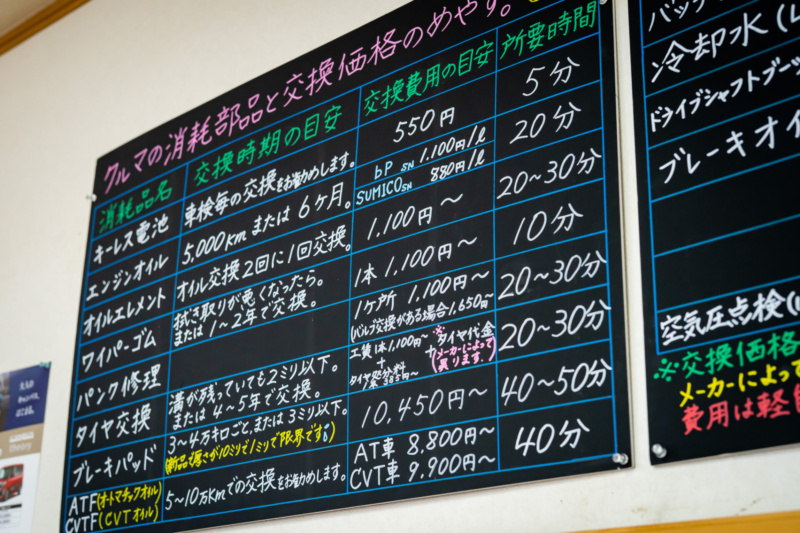 クルマの消耗部品と交換価格のめやす。
消耗品名 交換時期の目安 交換費用の目安 所要時間
キーレス電池 車検毎の交換をお勧めします。 550円 5分
エンジンオイル 5,000kmまたは6ヶ月。 bP SN 1,100円/ℓ 20分
SUMICO SN 880円/ℓ
オイルエレメント オイル交換2回に1回交換。 1,100円〜 20〜30分
ワイパーゴム 拭き取りが悪くなったら。 1本 1,100円〜 10分
または1〜2年で交換。
パンク修理 1ケ所 1,100円〜 20〜30分
(バルブ交換がある場合1,650円〜
タイヤ交換 溝が残っていても2ミリ以下。 工賃1本1,100円〜 ※タイヤ代金 20〜30分
または4〜5年で交換。 + + メーカーによって
タイヤ処分料 異ります。
ブレーキパッド 3〜4万キロごと、または3ミリ以下。 10,450円〜 40〜50分
(新品で厚さが10ミリで1ミリで限界です。)
ATF(オートマチックオイル) 5〜10万Kmでの交換をお勧めします。 AT車 8,800円〜 40分
CVTF(CVTオイル) CVT車 9,900円〜
冷却水(L
ドライブシャフトブーツ
ブレーキオイ
空気圧点検(
※交換価格
メーカーによって
費用は軽